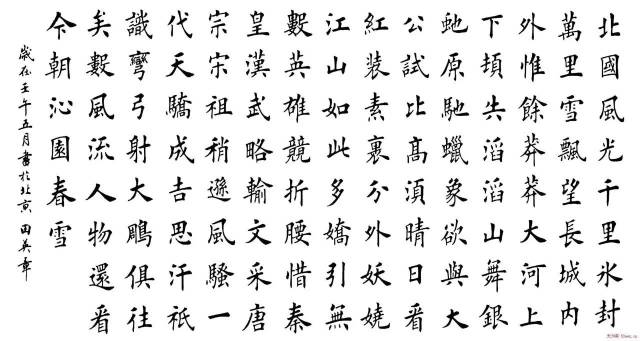 北國風光千里氷封
萬里雪飄望長城内
外惟餘莽莽大河上
下頓失滔滔山舞銀
虵原馳蠟象欲與天
公試比高須晴日看
紅装素裹分外妖嬈
江山如此多嬌引無
數英雄競折腰惜秦
皇漢武略輸文采唐
宗宋祖稍遜風騷一
代天驕成吉思汗祇
識彎弓射大鵰俱往
矣數風流人物還看
今朝沁園春雪
歲在壬午五月書於北京田英章